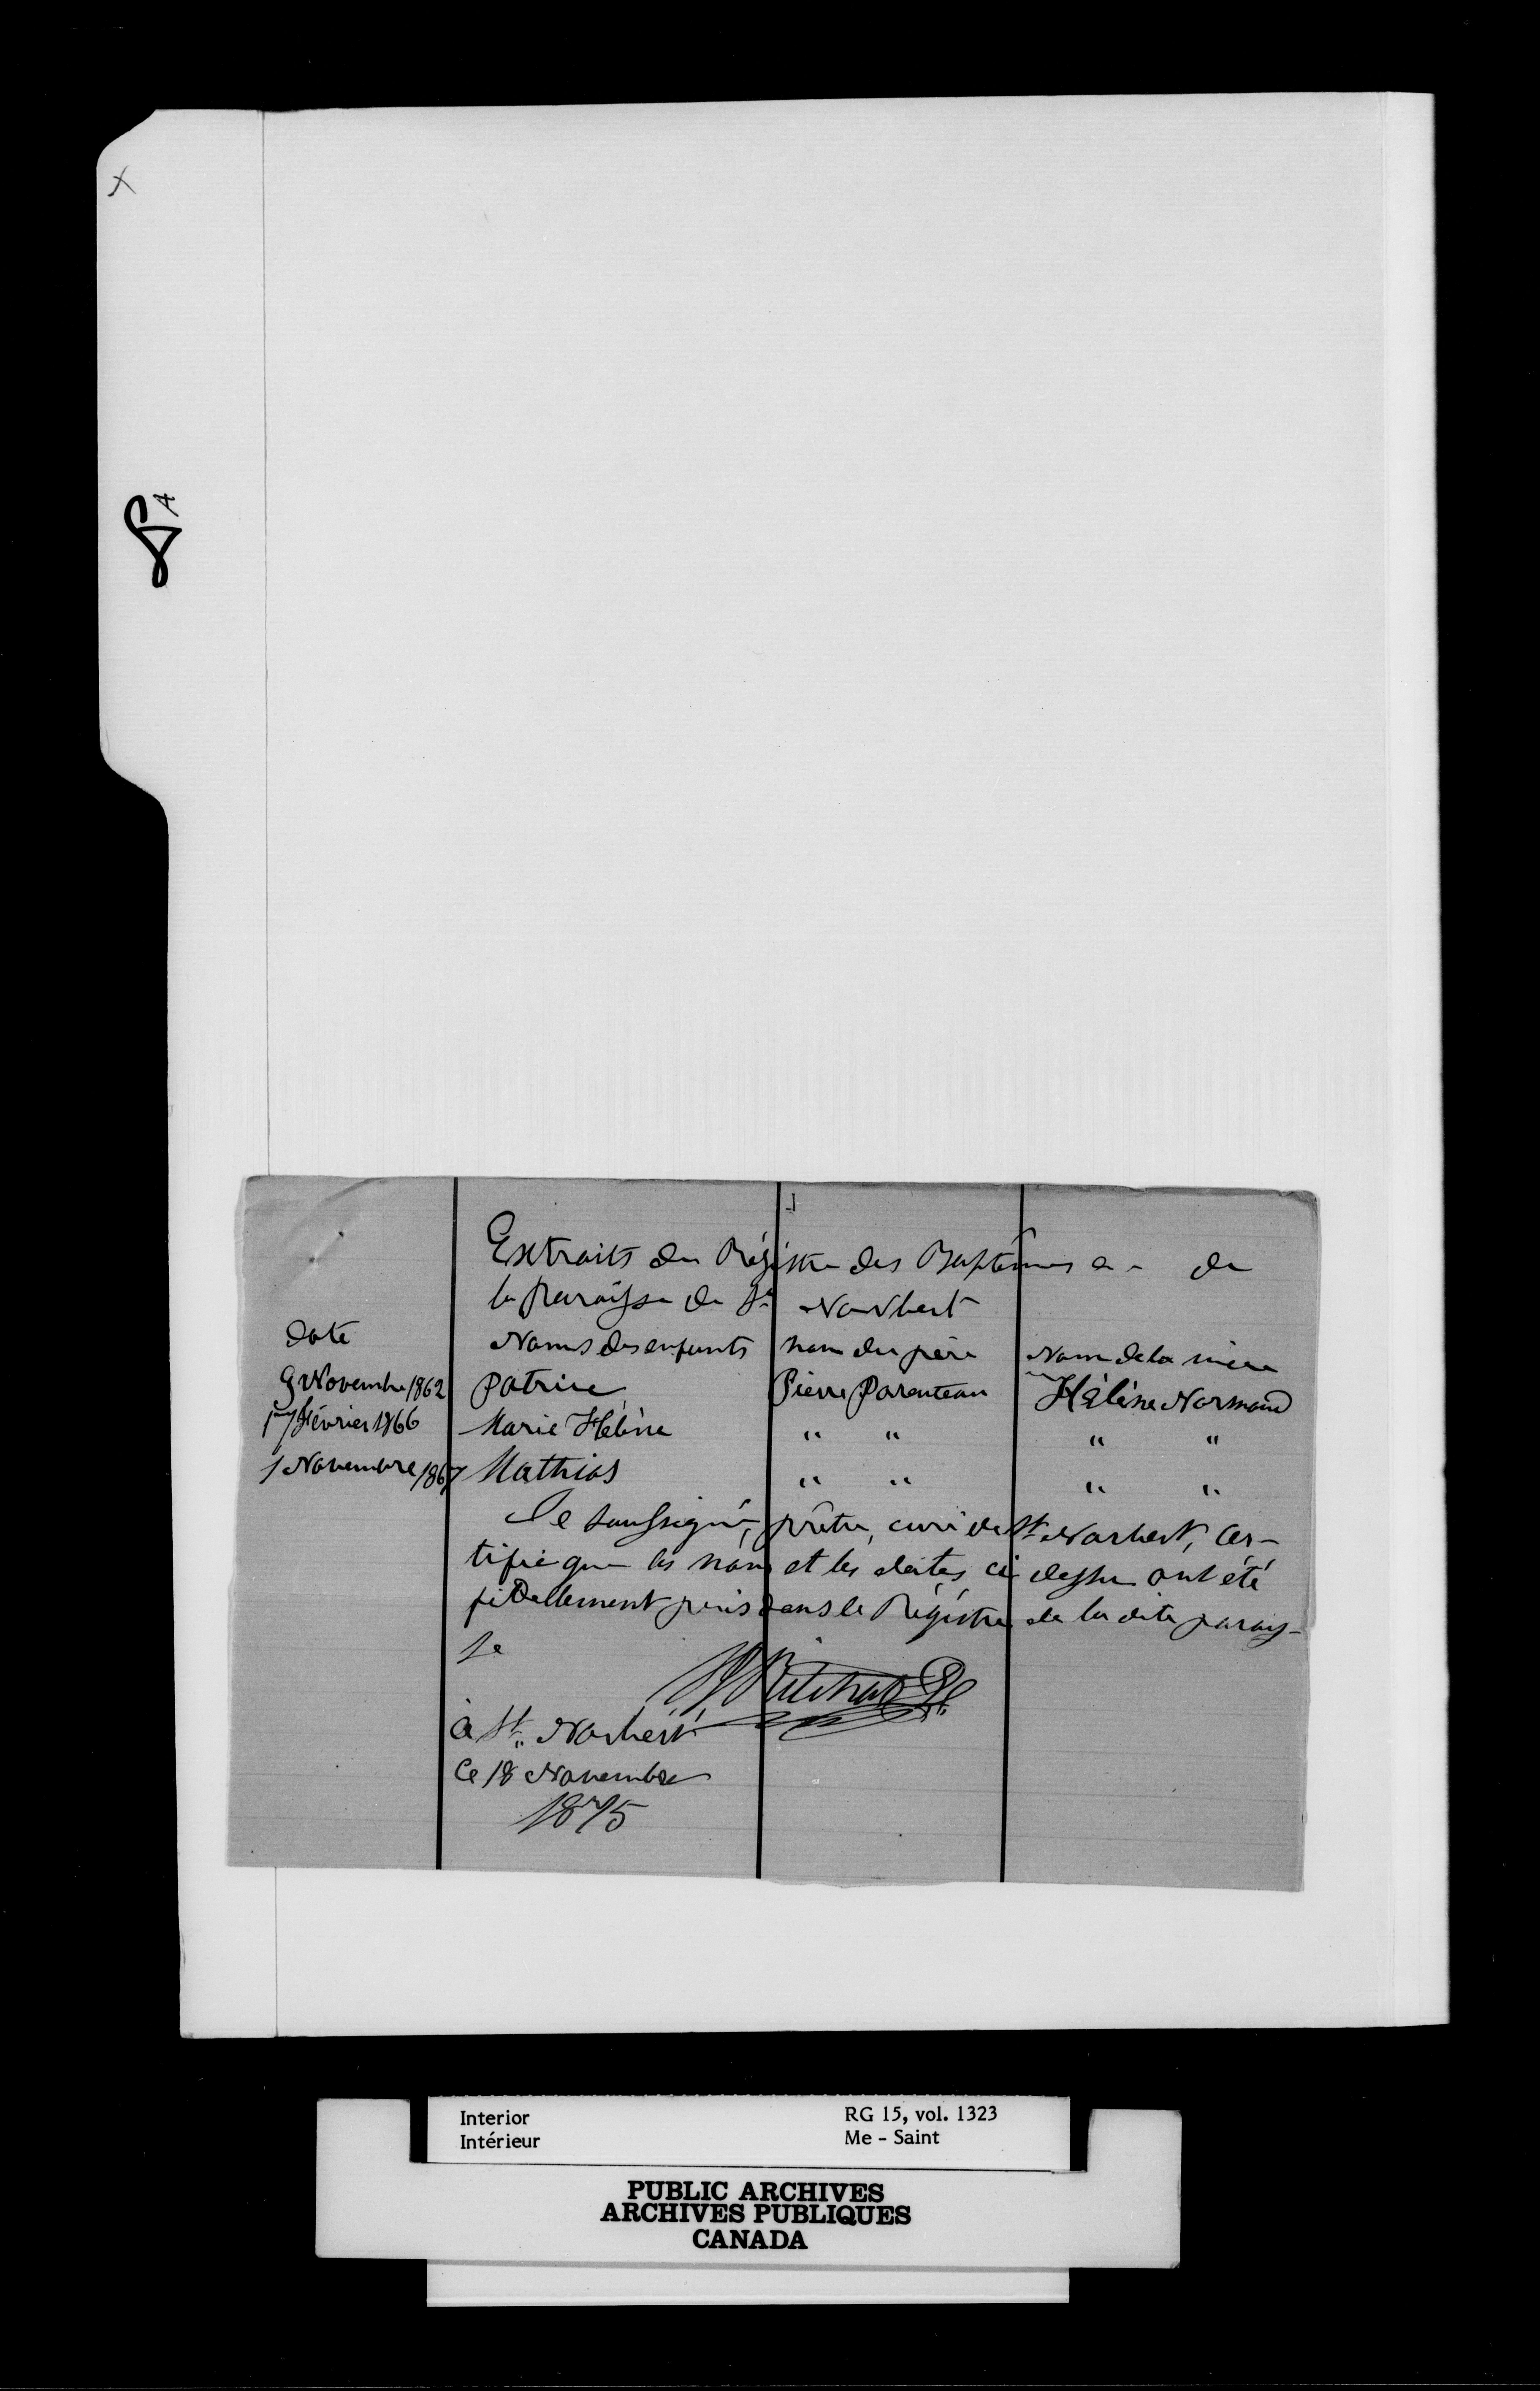 x
8 A
Extraits du Régistre des Baptêmes de
la paroisse de St Norbert
date | Noms des enfants | nom du père | Nom de la mère
9 Novembre 1862 | Patrice | Pierre Parenteau | Hélène Normand
17 Février 1866 | Marie Hélène | " " | " "
1 Novembre 1867 | Mathias | " " | " "
Je soussigné, prêtre, curé de St Norbert, Cer-
tifie que les noms et les dates ci dessus ont été
fidellement pris dans le Régistre de la dite parois-
se
Ritchot Ptr
à St. Norbert
Ce 18 Novembre
1875
Interior
Intérieur
RG 15, vol. 1323
Me - Saint
PUBLIC ARCHIVES
ARCHIVES PUBLIQUES
CANADA